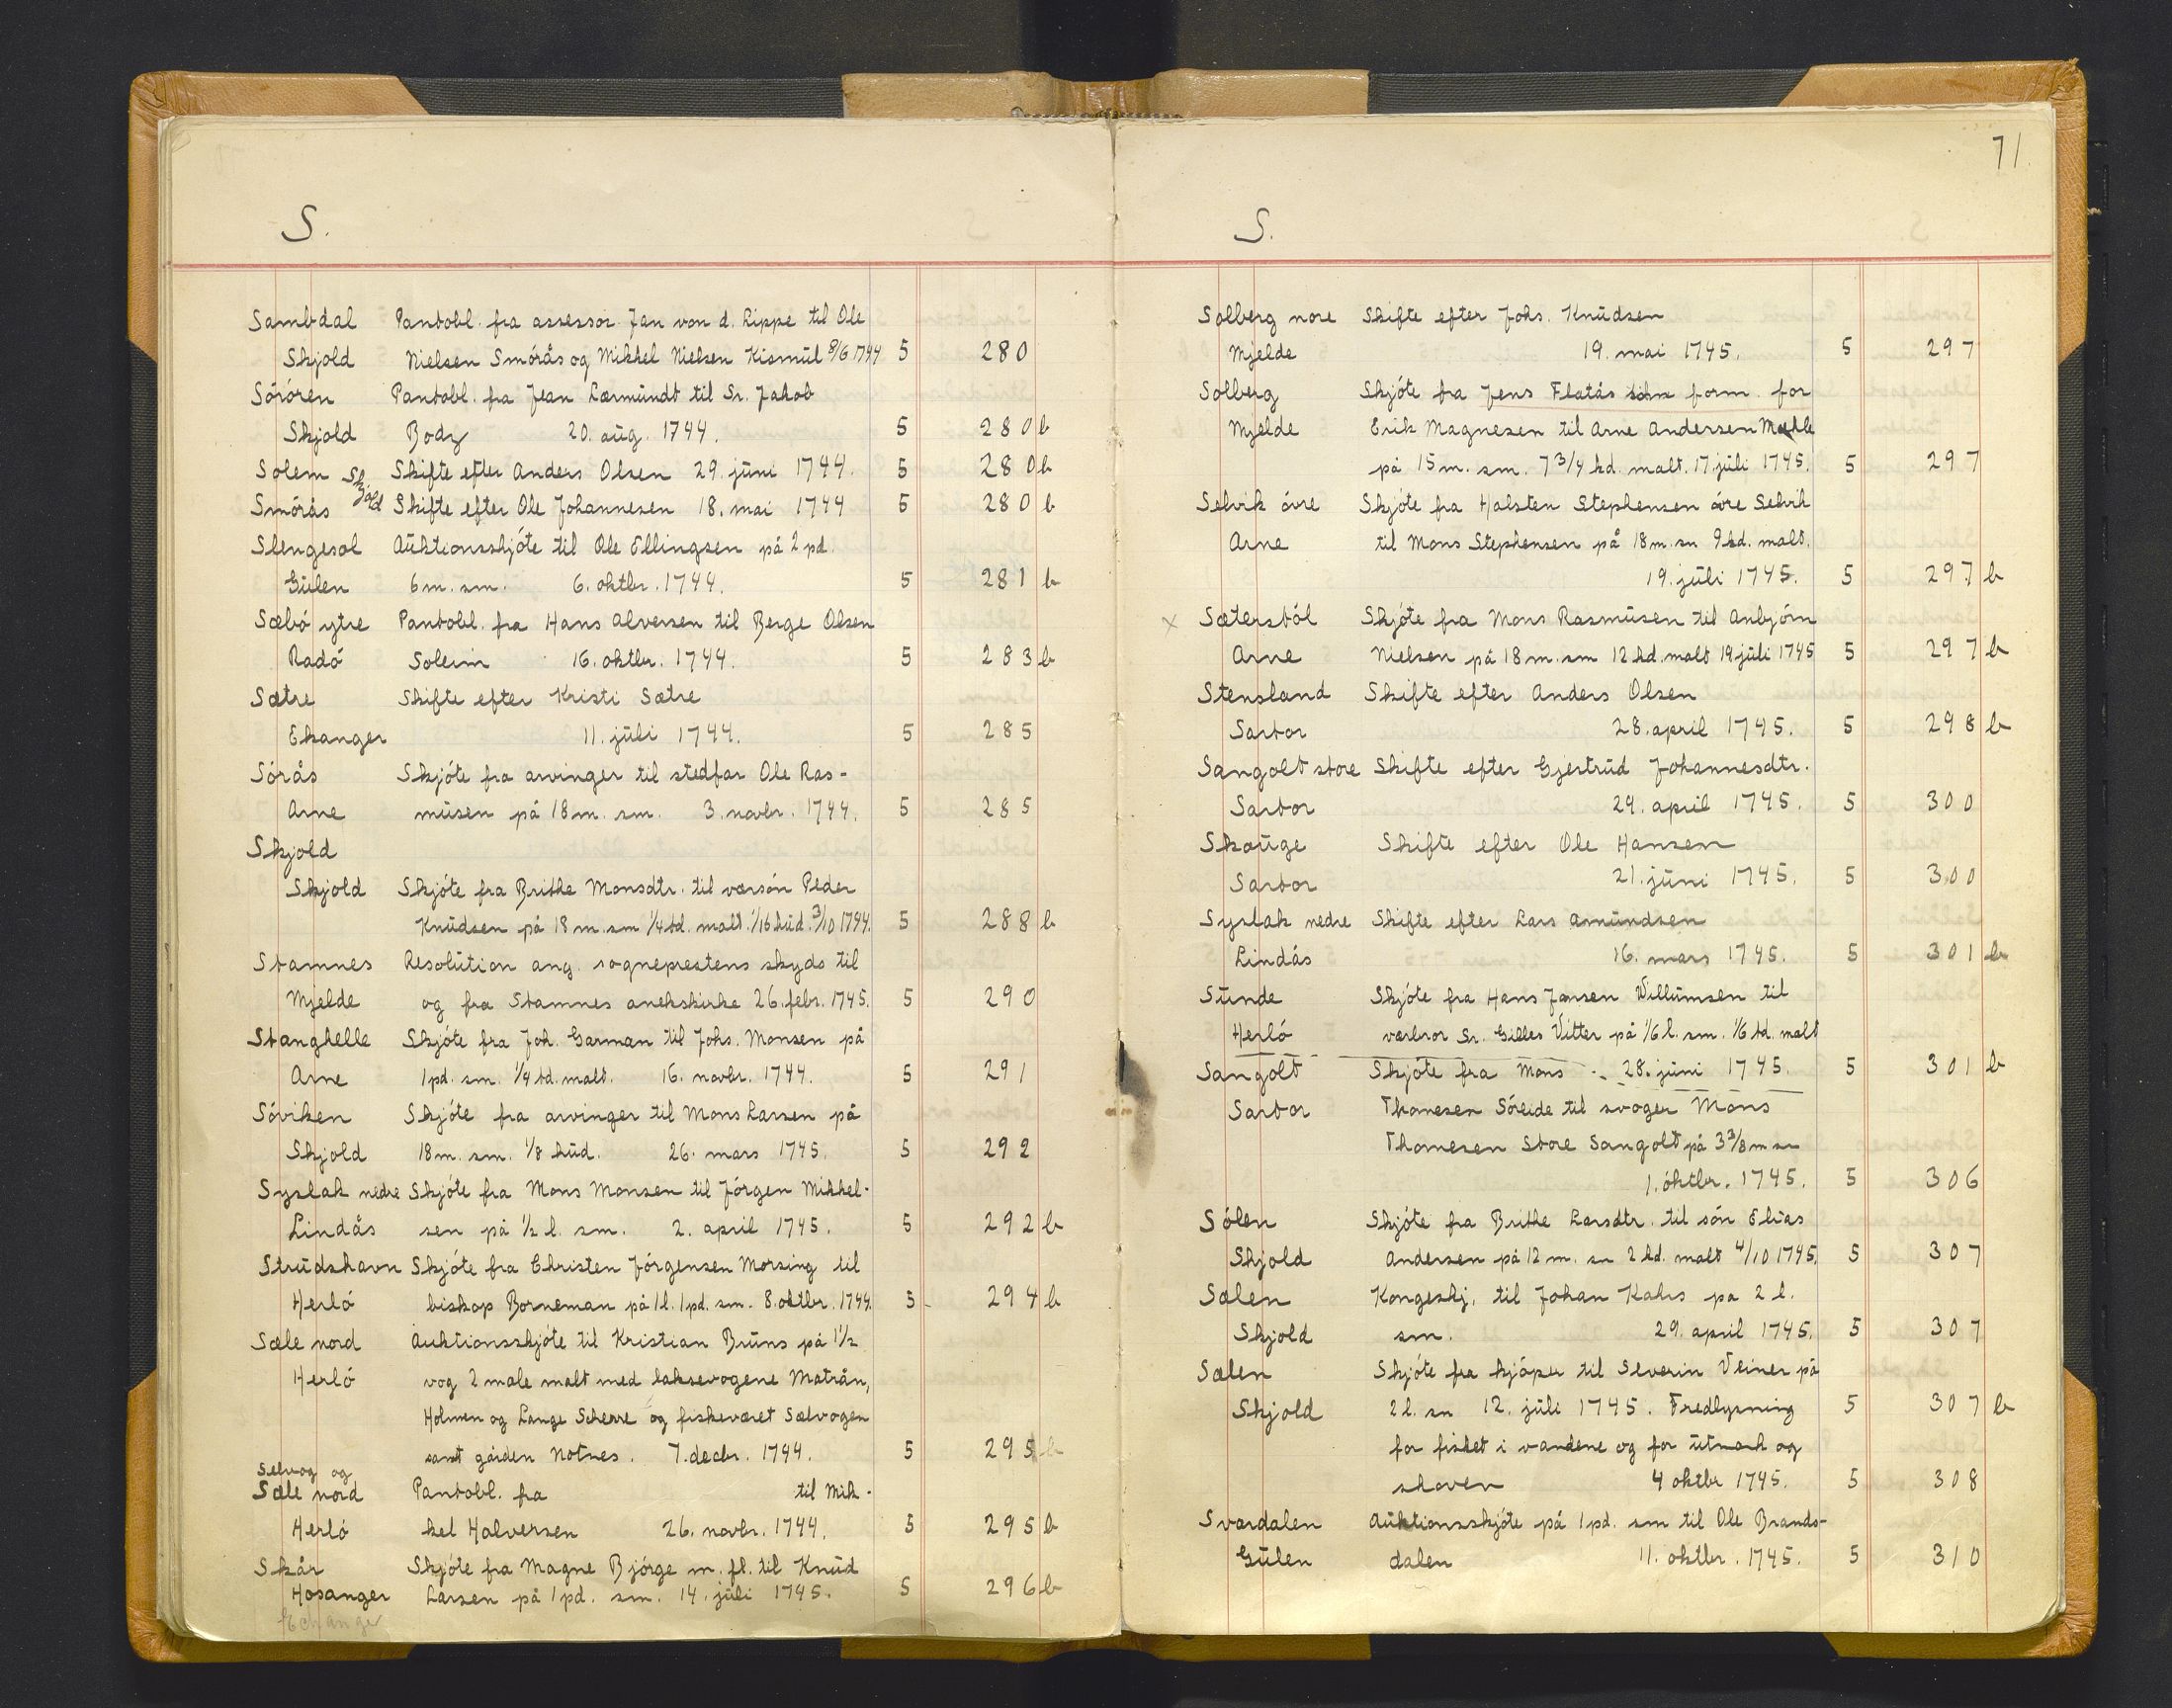 S.
Sambdal Pantobl. fra assessor Jan von d. Lippe til Ole
Skjold Nielsen Smörås og Mikkel Nielsen Kismul 8/6 1744 5 280
Söróren Pantobl. fra Jean Lærmundt til Sr. Jakob
Skjold Body 20. aug. 1744. 5 280 b
Solem Skjold Skifte efter Anders Olsen 29. juni 1744. 5 280 b
Smörås Skifte efter Ole Johannesen 18. mai 1744 5 280 b
Slengesol Auktionsskjóte til Ole Ellingsen på 2 pd.
Gulen 6 m. sm. 6. oktbr. 1744. 5 281 b
Sæbó ytre Pantobl. fra Hans Alversen til Berge Olsen
Radó Soleim 16. oktbr. 1744. 5 283 b
Sætre Skifte efter Kristi Sætre
Ekanger 11. juli 1744. 5 285
Sórås Skjóte fra arvinger til stedfar Ole Ras-
Arne musen på 18 m. sm. 3. novbr. 1744. 5 285
Skjold
Skjold Skjóte fra Brithe Monsdtr. til værsón Peder
Knudsen på 18 m. sm 1/4 td. malt. 1/16 hud. 3/10 1744. 5 288 b
Stamnes Resolution ang. sogneprestens skyds til
Mjelde og fra Stamnes anekskirke 26. febr. 1745. 5 290
Stanghelle Skjóte fra Joh. Garman til Johs. Monsen på
Arne 1 pd. sm. 1/4 td. malt. 16. novbr. 1744. 5 291
Sóviken Skjóte fra arvinger til Mons Larsen på
Skjold 18 m. sm. 1/8 hud. 26. mars 1745. 5 292
Syslak nedre Skjóte fra Mons Monsen til Jórgen Mikkel-
Lindås sen på 1/2 l. sm. 2. april 1745. 5 292 b
Strudshavn Skjóte fra Christen Jórgensen Morsing til
Herló biskop Borneman på 1 l. 1 pd. sm. 8. oktbr. 1744. 5 294 b
Sæle nord Auktionsskjóte til Kristian Bruns på 1 1/2
Herló vog 2 male malt med laksevogene Matrån,
Holmen og Lange Scherre og fiskeværet Sælvogen
samt gården Notnes. 7. decbr. 1744. 5 295 b
Selvog og
Sæle nord Pantobl. fra til Mik-
Herló kel Halversen 26. novbr. 1744. 5 295 b
Skår Skjóte fra Magne Bjórge m. fl. til Knud
Hosanger Larsen på 1 pd. sm. 14. juli 1745. 5 296 b
Echanger
71
S.
Solberg nore Skifte efter Johs. Knudsen
Mjelde 19. mai 1745. 5 297
Solberg Skjóte fra Jens Flatås som form. for
Mjelde Erik Magnesen til Arne Andersen Mæhle
på 15 m. sm. 7 3/4 kd. malt. 17. juli 1745. 5 297
Selvik óvre Skjóte fra Halsten Stephensen óvre Selvik
Arne til Mons Stephensen på 18 m. sm 9 kd. malt.
19. juli 1745. 5 297 b
x Sætersból Skjóte fra Mons Rasmusen til Anbjórn
Arne Nielsen på 18 m. sm 12 kd. malt 19 juli 1745 5 297 b
Stensland Skifte efter Anders Olsen
Sartor 28. april 1745. 5 298 b
Sangolt store Skifte efter Gjertrud Johannesdtr.
Sartor 29. april 1745. 5 300
Skauge Skifte efter Ole Hansen
Sartor 21. juni 1745. 5 300
Syslak nedre Skifte efter Lars Amundsen
Lindås 16. mars 1745. 5 301 b
Sunde Skjóte fra Hans Jansen Willumsen til
Herló værbror Sr. Gilles Vitter på 1/6 l. sm. 1/6 td. malt
Sangolt Skjóte fra Mons 28. juni 1745. 5 301 b
Sartor Thomesen Sóreide til svoger Mons
Thomesen Store Sangolt på 3 3/8 m sm
1. óktbr. 1745. 5 306
Sólen Skjóte fra Brithe Larsdtr. til són Elias
Skjold Andersen på 12 m. sm 2 kd. malt 4/10 1745. 5 307
Sælen Kongeskj. til Johan Kahrs på 2 l.
Skjold sm. 29. april 1745. 5 307
Sælen Skjóte fra kjóper til Severin Veiner på
Skjold 2 l. sm 12. juli 1745. Fredlysning 5 307 b
for fisket i vandene og for utmark og
skoven 4 oktbr 1745. 5 308
Svardalen Auktionsskjóte på 1 pd. sm til Ole Brands-
Gulen dalen 11. oktbr. 1745. 5 310